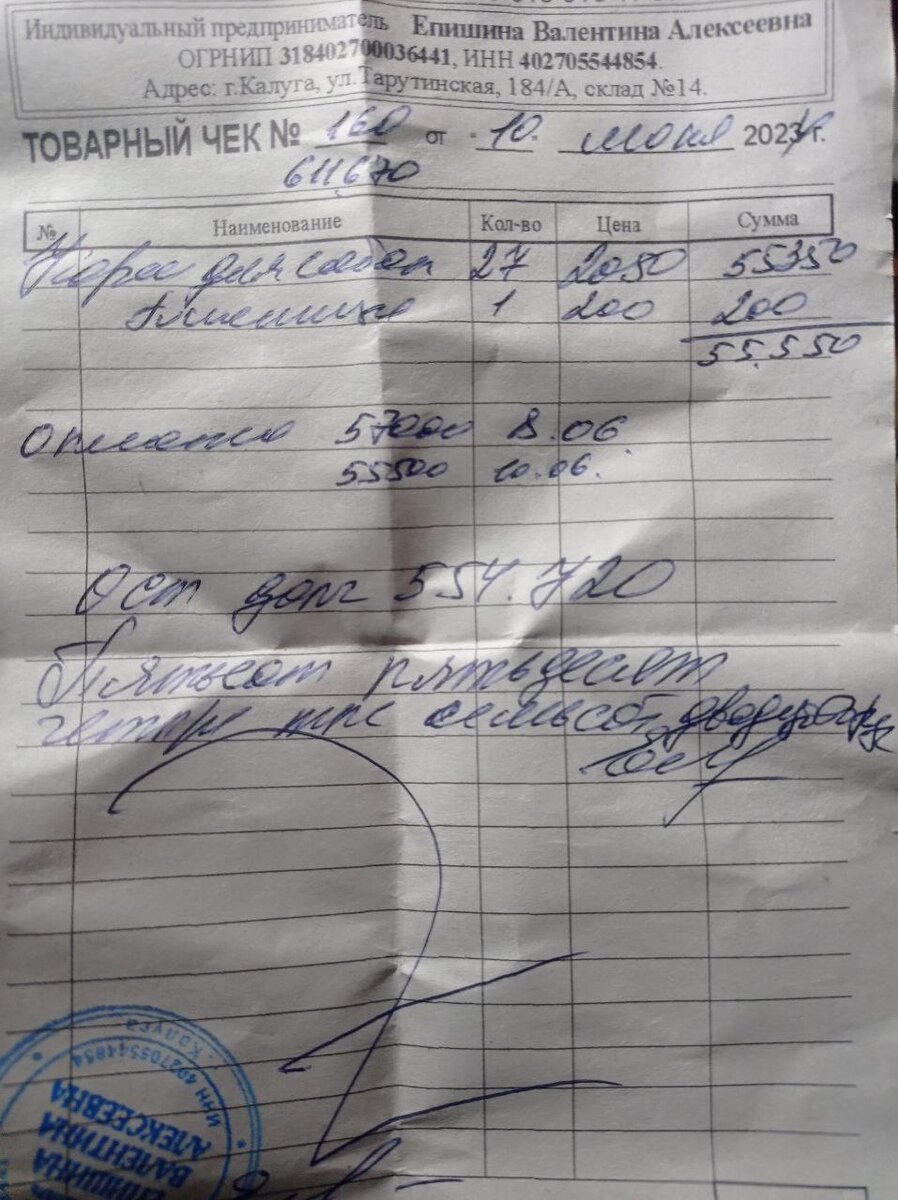 Индивидуальный предприниматель Епишина Валентина Алексеевна
ОГРНИП 318402700036441, ИНН 402705544854.
Адрес: г.Калуга, ул.Тарутинская, 184/А, склад №14.
ТОВАРНЫЙ ЧЕК № 160 от 10. июня 2024 г.
611,670
№ Наименование Кол-во Цена Сумма
Корм для собак 27 2050 55350
Пшеница 1 200 200
55.550
Оплата 57000 8.06
55500 10.06.
Ост долг 554.720
Пятьсот пятьдесят
четыре тыс семьсот двадцать руб
Калуга
ИНН 402705544854
ЕПИШИНА
ВАЛЕНТИНА
АЛЕКСЕЕВНА